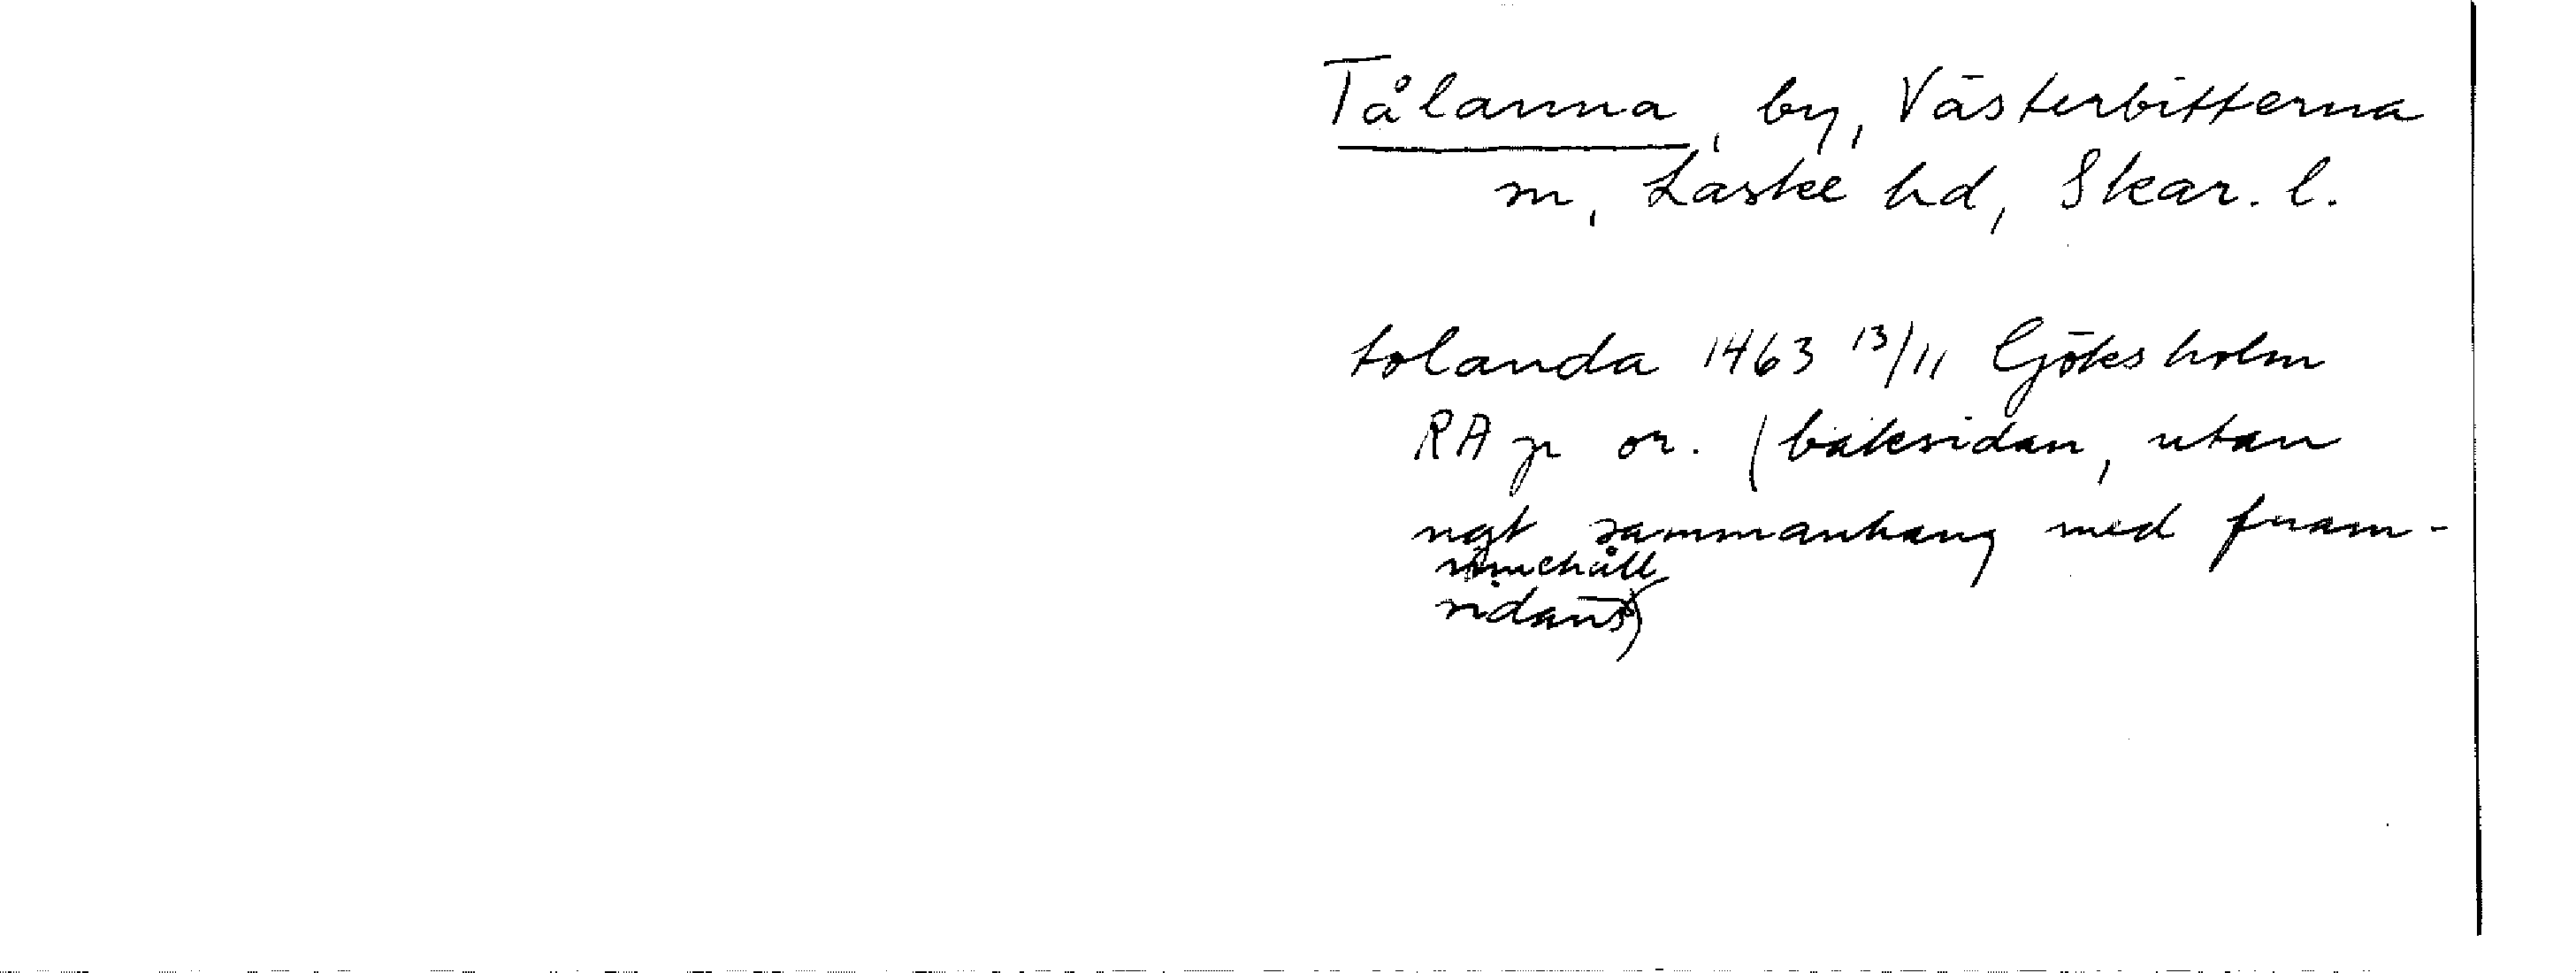 Tålanna, by, Västerbitterna
sn, Laske hd, Skar. l.
tolanda 1463 13/11 Gjöksholm
RA p or. (baksidan, utan
ngt sammanhang med fram-
innehåll
sidans)